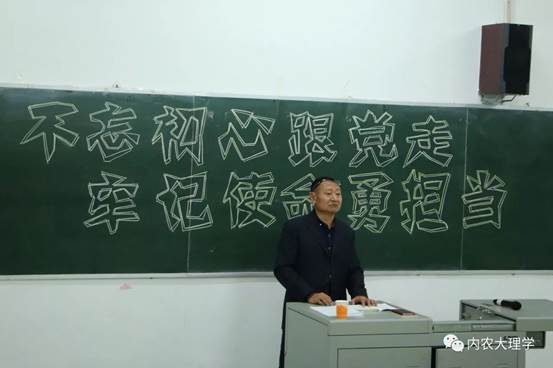 不忘初心跟党走
牢记使命勇担当
内农大理学